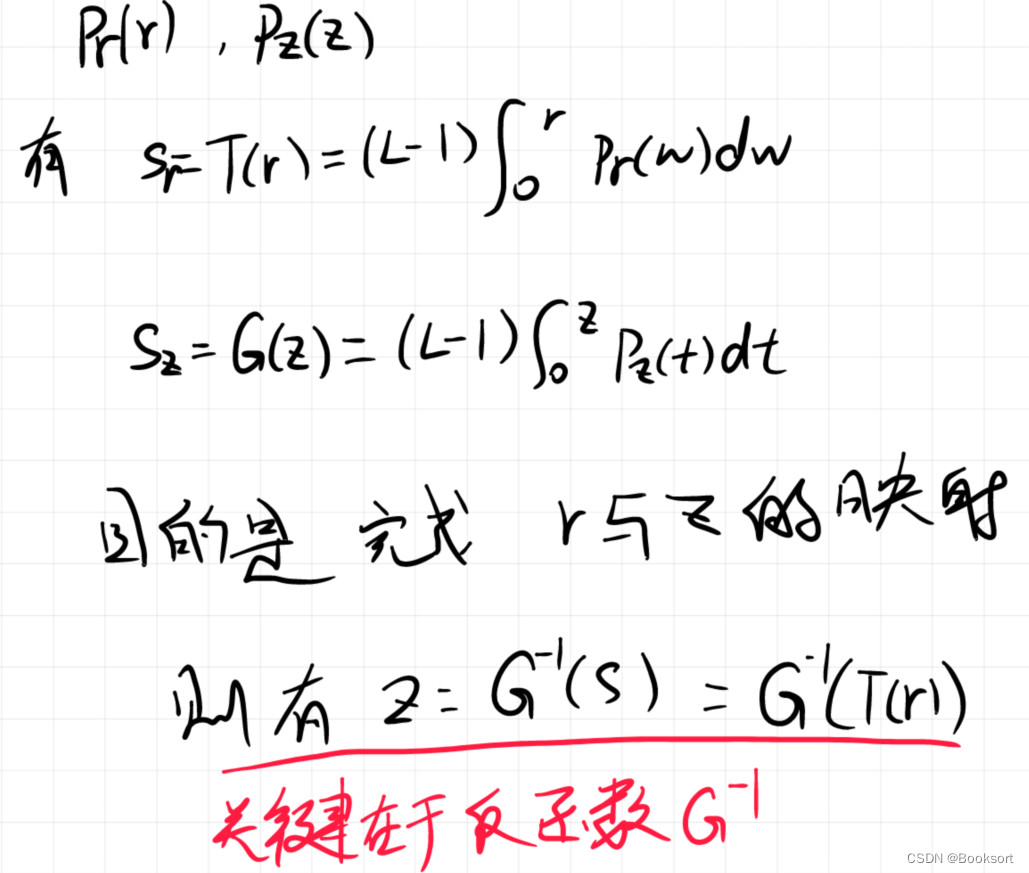 Pr(r) , Pz(z)
有 Sr=T(r)=(L-1)∫₀ʳ Pr(w)dw
Sz=G(z)=(L-1)∫₀ᶻ Pz(t)dt
目的是 完成 r与z的映射
则有 z=G⁻¹(s)=G⁻¹(T(r))
关键在于反函数G⁻¹
CSDN @Booksort